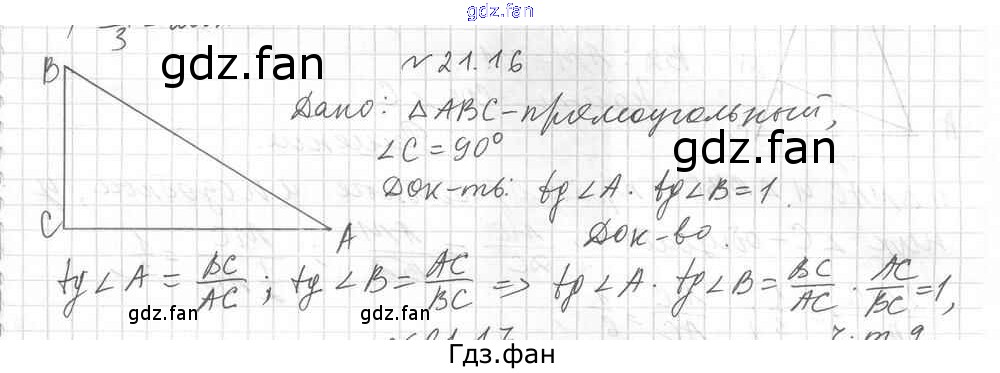 gdz.fan
3
gdz.fan
№ 21.16
B
Дано: △ABC - прямоугольный,
∠C = 90°
gdz.fan
Док-ть: tg∠A · tg∠B = 1.
C
A
Док-во.
tg∠A = BC/AC ; tg∠B = AC/BC => tg∠A · tg∠B = BC/AC · AC/BC = 1,
gdz.fan
gdz.fan
21.17
ч.т.д
Гдз.фан